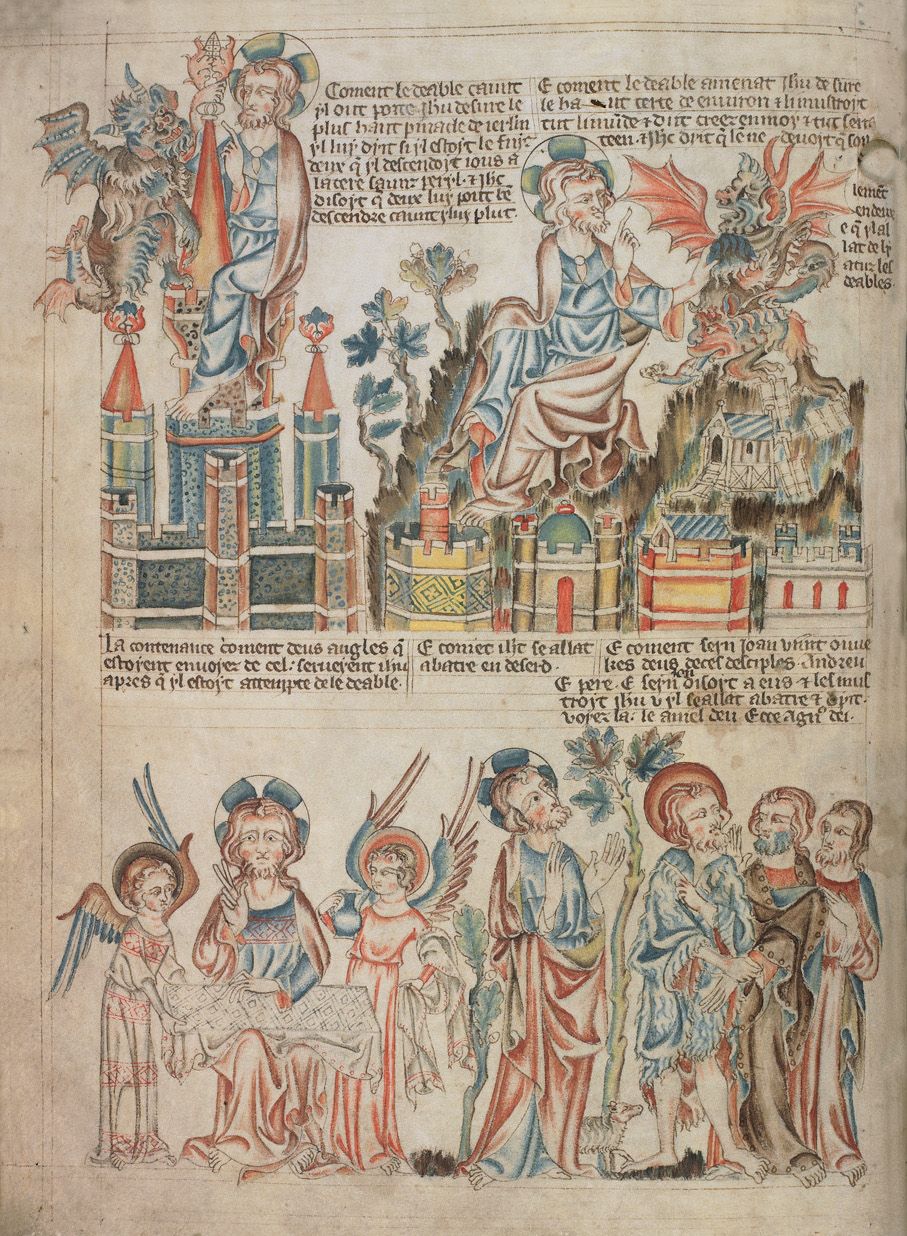 Coment le deable cauit
yl out porte ihu desure le
plus haut pinacle de ierlin
yl luy dyit si yl estoyt le fuiz
deux q̄ yl descendoyt ious a
la cere saunz peryl · & ihc
disoyt q̄ deux luy
descendre cauit yluy pluit ·
E coment le deable amenat ihu de sure
le ha ut terte de environ & li mustroyt
tut li munde & dyit creez en moy & tut serra
teen & ihc dyit q̄ le ne devoyt q̄ soul
en deux
e q̄ yl al
lat de ly
atuz les
deables ·
La contenance cōment deus angles q̄
estoyent envoyez de cel : serverent ihu
apres q̄ yl estoyt attempte de le deable ·
E comēt ihc se allat
abatre en deserd ·
E coment seyn Joan vint ovve
kes deus de ces desciples · Andreu
E pere · E seyn Jon disoyt a eus & les mus
troyt ihu v yl se allat abatre & dyit ·
voyez la · le aniel deu Ecce Agn⁹ dei ·